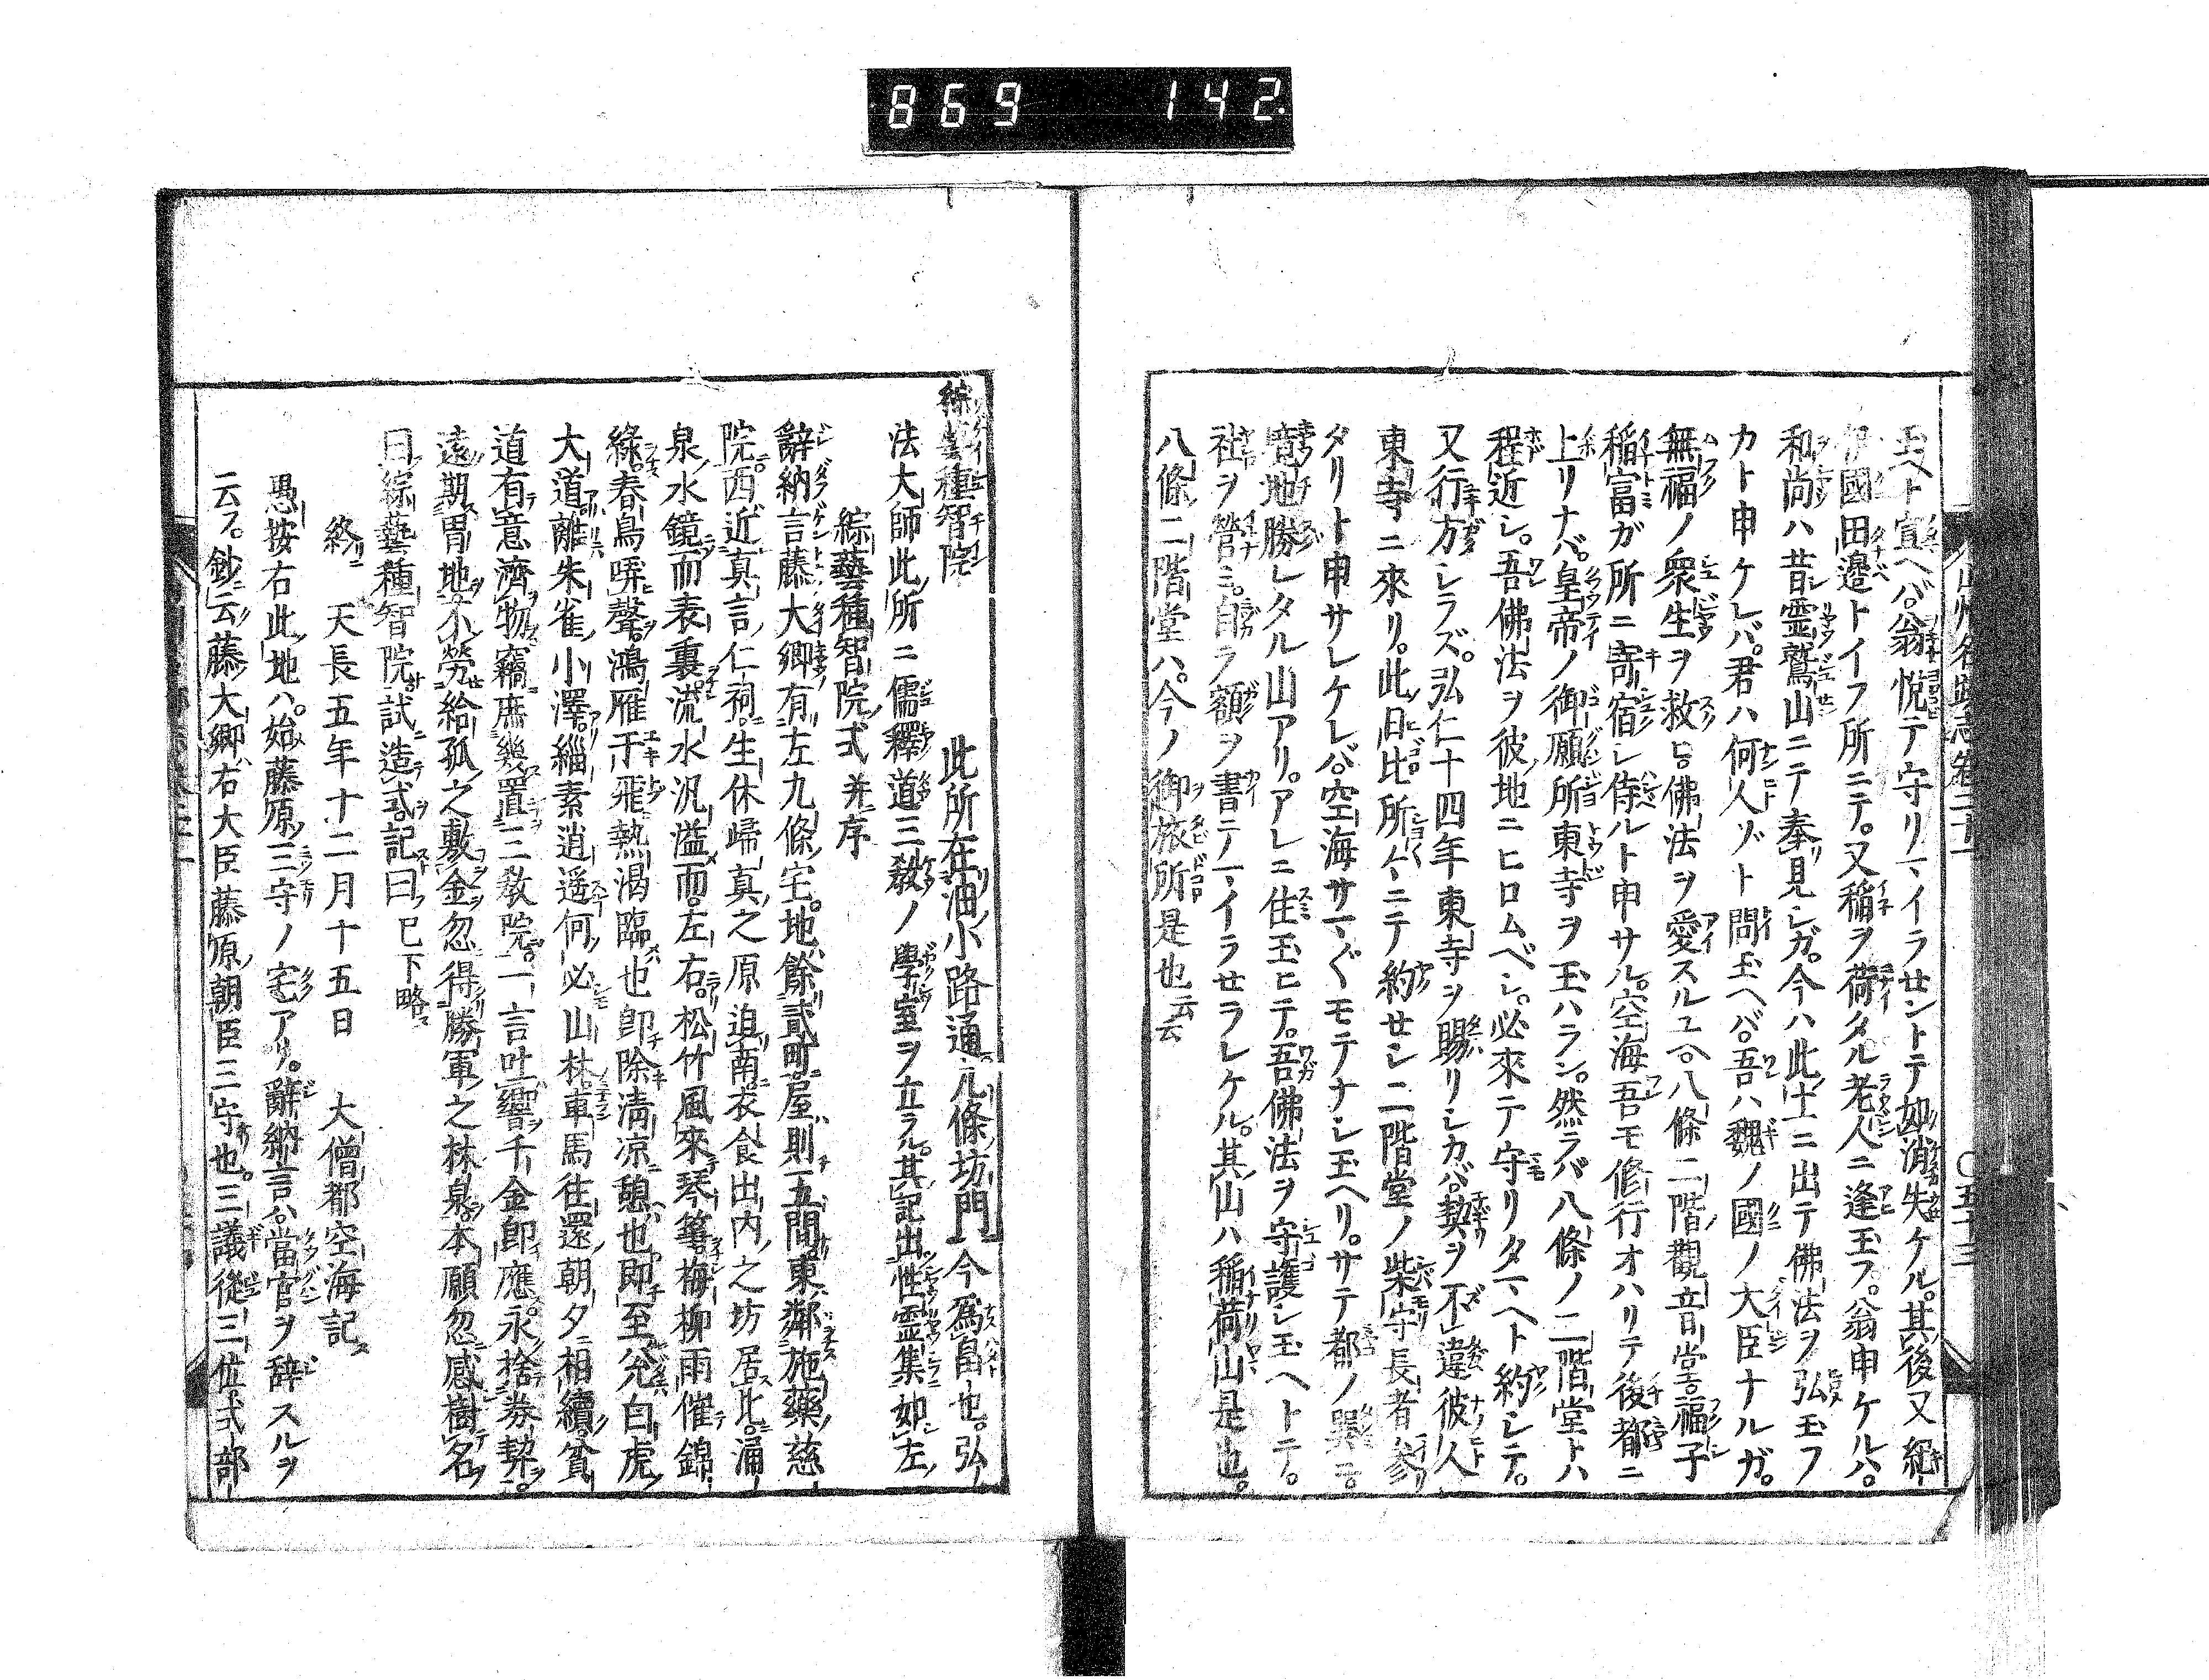 869 142
山州名跡志卷二十一 ○五十三
玉ヘト宣ヘバ。翁悦テ守リマイラセントテ如消失ケル。其後又紀
伊國田邉トイフ所ニテ。又稲ヲ荷タル老人ニ逢玉フ。翁申ケルハ。
和尚ハ昔霊鷲山ニテ奉見シガ。今ハ此土ニ出テ佛法ヲ弘玉フ
カト申ケレバ。君ハ何人ゾト問玉ヘバ。吾ハ魏ノ國ノ大臣ナルガ。
無福ノ衆生ヲ救ヒ佛法ヲ愛スルユヘ。八條二階觀音堂福子
稲冨ガ所ニ寄宿シ侍ルト申サル。空海吾モ修行オハリテ後都ニ
上リナバ。皇帝ノ御願所東寺ヲ玉ハラン。然ラバ八條ノ二階堂トハ
程近シ。吾佛法ヲ彼地ニヒロムベシ。必來テ守リタマヘト約シテ。
又行方シラズ。弘仁十四年東寺ヲ賜リシカバ。契ヲ不違彼人
東寺ニ來リ。此日比所々ニテ約セシ二階堂ノ柴守長者參
タリト申サレケレバ。空海サマ〴〵モテナシ玉ヘリ。サテ都ノ巽ニ。
寛地勝レタル山アリ。アレニ住玉ヒテ。吾佛法ヲ守護シ玉ヘトテ。
社ヲ營ミ。自ラ額ヲ書テマイラセラレケル。其山ハ稲荷山是也。
八條二階堂ハ。今ノ御旅所是也云云
綜藝種智院 此所在油小路通八條坊門今爲畠也。弘
法大師此所ニ儒釋道三教ノ學室ヲ立ラル。其記出性霊集如左
綜藝種智院式并序
辭納言藤大卿有左九條宅。地餘貳町。屋則五間。東鄰施藥慈
院。西近真言仁祠。生休歸真之原迫南。衣食出内之坊居北。涌
泉水鏡而表裏。流水汎溢而左右。松竹風來琴箏。梅柳雨催錦
綉。春鳥哢聲。鴻雁于飛。熱渇臨也即除清凉。憩也即至。兌白虎
大道。離朱雀小澤。緇素逍遥何必山林。車馬往還朝夕相續。貧
道有意濟物。竊庶幾置三教院。一言吐響千金即應。永捨券契。
遠期冑地。不勞給孤之敷金。忽得勝軍之林泉。本願忽感樹名
曰綜藝種智院。試造式記曰。已下略
終 天長五年十二月十五日 大僧都空海記
愚按右此地ハ。始藤原三守ノ宅アリ。辭納言ハ。當官ヲ辞スルヲ
云フ。鈔云藤大卿右大臣藤原朝臣三守也。三議從三位式部